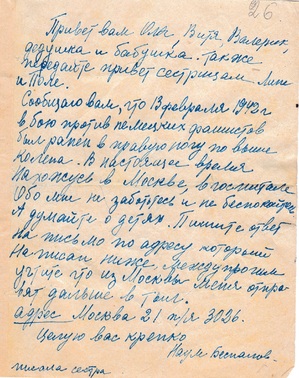 26
Привет вам Оля, Витя Валерик,
дедушка и бабушка. Также
передайте привет сестрицам Лине
и Поле.
Сообщаю вам, что 13 февраля 1943 г
в бою против немецких фашистов
был ранен в правую ногу по выше
колена. В настоящее время
нахожусь в Москве, в госпитале
Обо мне не заботьтесь и не беспокойтесь
А думайте о детях. Пишите ответ
на письмо по адресу который
написан ниже. Между прочим
учтите что из Москвы меня отпра-
вят дальше в тыл.
адрес Москва 21 п/я 3026.
Целую вас крепко
Наум Беспалов.
писала сестра